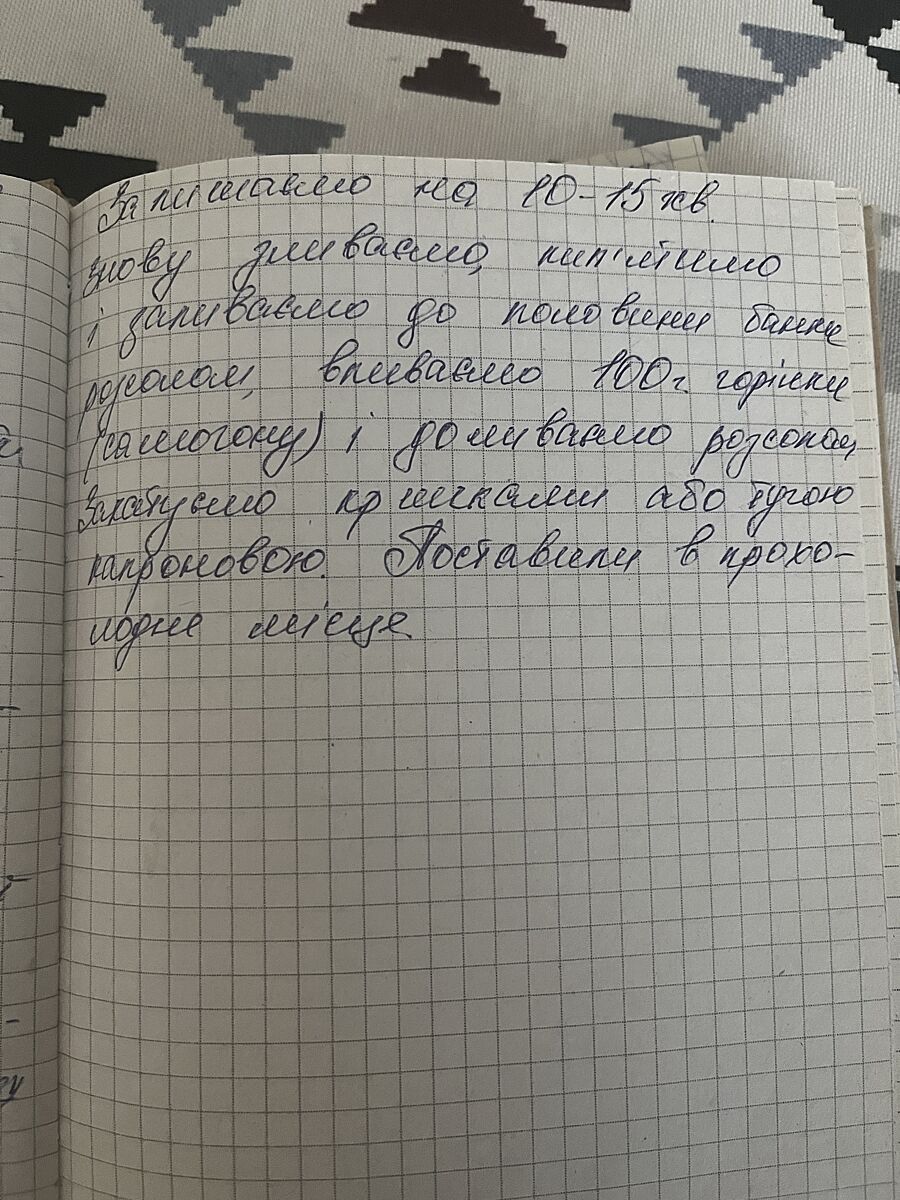 Залишаємо на 10-15 хв.
знову зливаємо, кип'ятимо
і заливаємо до половини банки
розсолом, вливаємо 100г. горілки
(самогону) і доливаємо розсолом,
Закатуємо кришками або тугою
капроновою. Поставили в прохо-
лодне місце